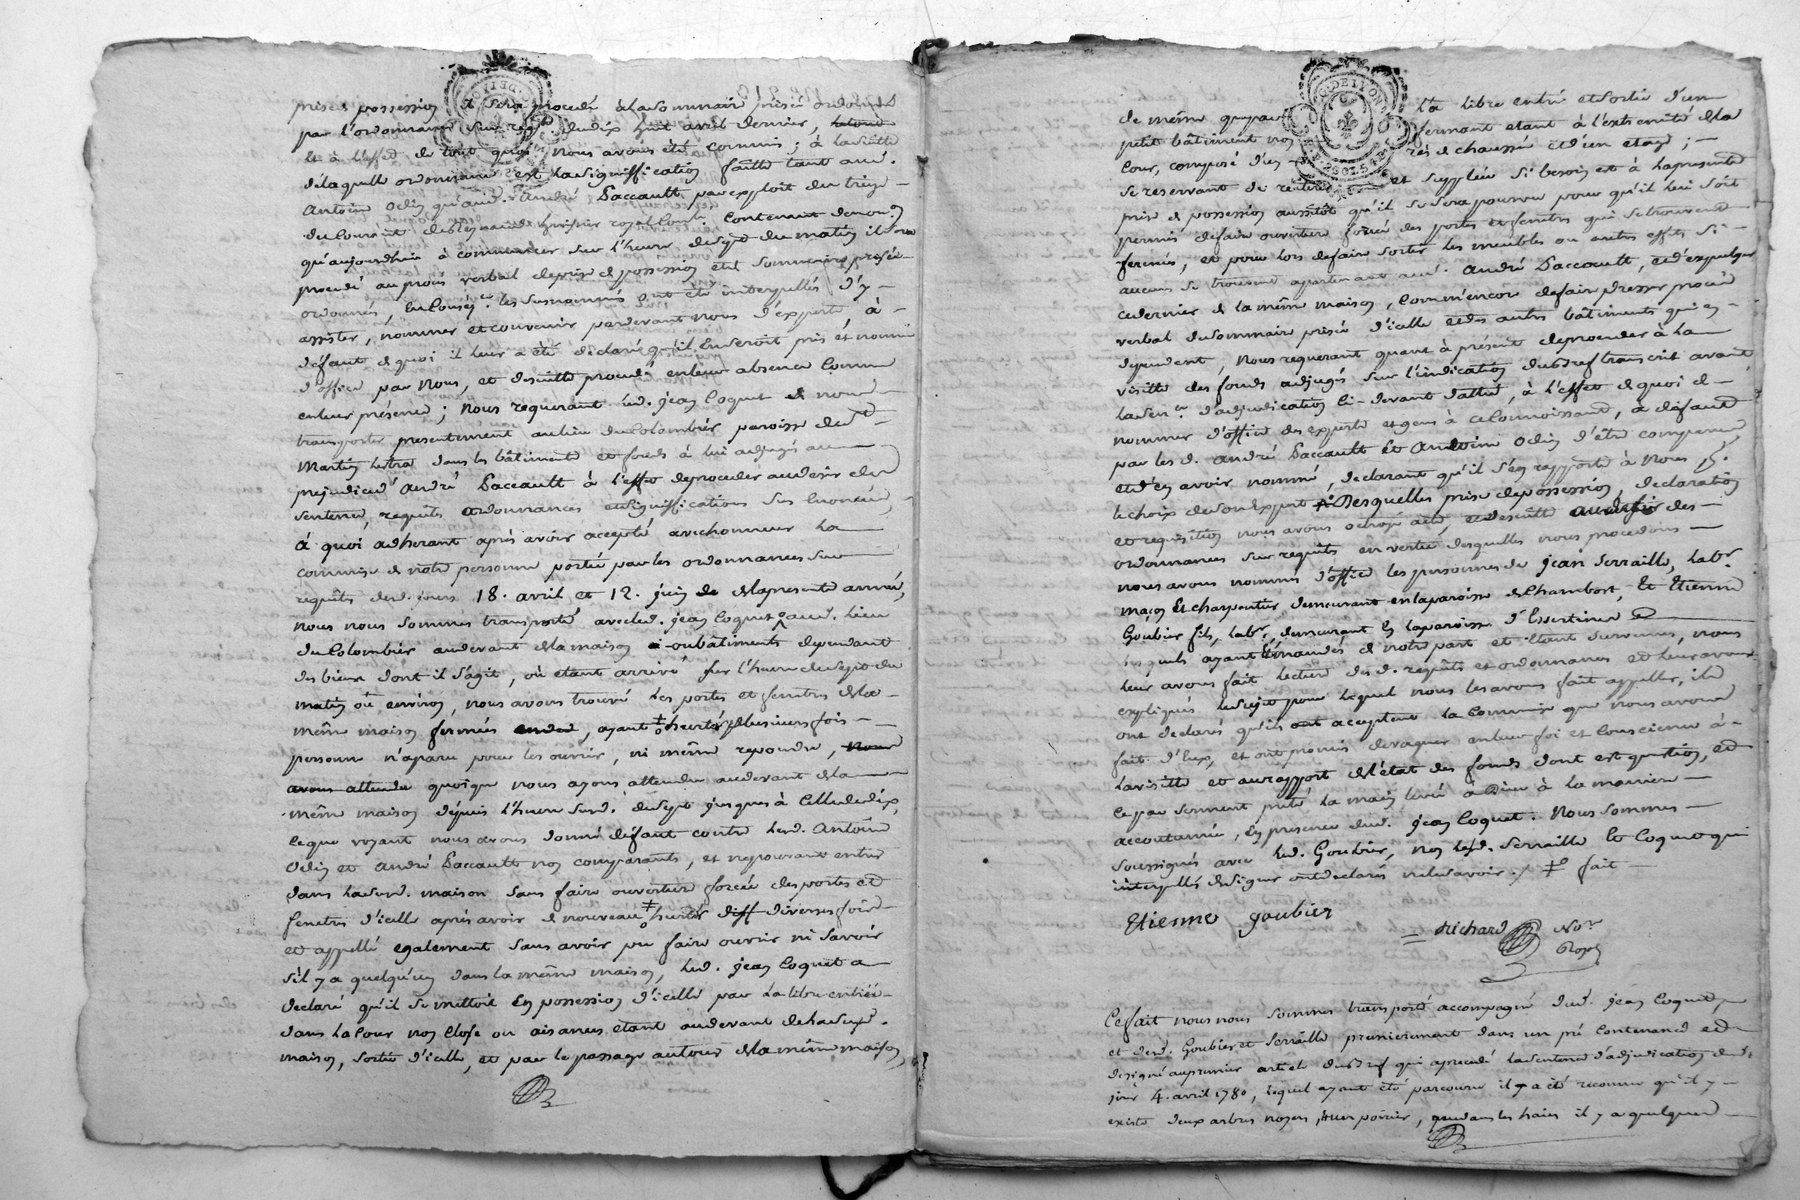 prise de possession et sera procedé à la sommaire prisée ordonnée
par l'ordonnance sur reqte du dix huit avril dernier,
à l'effet de tout quoi nous avons été commis; à la suitte
de laquelle ordonnance est la signiffication faitte tant aud.
Antoine Odin qu'aud. André Paccault par exploit du treize
du courant huissier royal contenant
qu'aujourdhui à commencer sur l'heure de sept du matin il sera
procedé au procès verbal de prise de possession et sommaire prisée
ordonnés, les susnommés ont été interpellés d'y
assister, nommer et convenir pardevant nous d'experts, à
défaut de quoi il leur a été declaré qu'il en seroit pris et nommé
d'office par nous, et desuitte procedé en leur absence comme
en leur présence; nous requerant led. jean Coquet de nous
transporter presentement au lieu du Colombier paroisse de St
Martin Lestra dans les bâtiments et fonds à lui adjugés au
prejudice d'André Paccault à l'effet de proceder au desir des
sentence, requêtes ordonnances et signiffications sus énoncées,
à quoi adherant après avoir accepté avec honneur la
commise de notre personne portée par les ordonnances sur
requêtes desd. jours 18. avril et 12. juin de la presente année,
nous nous sommes transporté avec led. jean Coquet aud. lieu
du Colombier au devant de la maison ou bâtiments dependant
des biens dont il s'agit, où étant arrivé sur l'heure de sept du
matin ou environ, nous avons trouvé les portes et fenetres de la
même maison fermées, ayant heurté plusieurs fois
personne n'a paru pour les ouvrir, ni même repondre,
avons attendu quoique nous ayons attendu au devant de la
même maison depuis l'heure susd. de sept jusques à celle de dix,
ce que voyant nous avons donné défaut contre lesd. Antoine
Odin et André Paccault non comparants, et ne pouvant entrer
dans lasusd. maison sans faire ouverture forcée des portes et
fenetres d'icelle après avoir de nouveau heurté diff diverses fois
et appellé egalement sans avoir pu faire ouvrir ni savoir
s'il y a quelqu'un dans la même maison, led. jean Coquet a
declaré qu'il se mettoit en possession d'icelle par la libre entrée
dans la cour non close ou aisances étant au devant de la susd.
maison, sortie d'icelle, et par le passage autour de la même maison,
de même que par la libre entrée et sortie d'un
petit bâtiment non fermant etant à l'extremité de la
cour, composé d'un rés de chaussée et d'un étage;
se reservant de réitérer et suppléer si besoin est à la presente
prise de possession aussitôt qu'il se sera pourvu pour qu'il lui soit
permis de faire ouverture forcée des portes et fenetres qui se trouvent
fermées, et pour lors de faire sortir les meubles ou autres effets si
aucuns se trouvent apartenant aud. André Paccault, et d'expulser
ce dernier de la même maison, comm'encore de faire dresser procès
verbal de sommaire prisée d'icelle et des autres bâtiments qui en
dependent, nous requerant quant à présent de proceder à la
visitte des fonds adjugés sur l'indication du bref transcrit avant
la sence d'adjudication ci-devant dattée, à l'effet de quoi de
nommer d'office des experts et gens à ce connoissant, à défaut
par les d. André Paccault et Antoine Odin d'être comparus
et d'en avoir nommé, declarant qu'il s'en rapporte à nous pr.
le choix de son expert. Desquelles prise de possession, declaration
et requisition nous avons octroyé acte, et desuitte au desir des
ordonnances sur requête en vertu desquelles nous procedons
nous avons nommés d'office les personnes de jean Serraille, labr.
maçon et charpentier demeurant en la paroisse de Chambost, et Etienne
Goubier fils, labr., demeurant en la paroisse d'Essertines
lesquels ayant mandés de notre part et étant survenus, nous
leur avons fait lecture desd. requêtes et ordonnances et leur avons
expliqués le sujet pour lequel nous les avons fait appeller, ils
ont declarés qu'ils acceptent la commise que nous avons
fait d'eux, et ont promis de vaquer en leur foi et conscience à
la visitte et au rapport de l'état des fonds dont est question, et
ce par serment prêté la main levée à Dieu à la maniere
accoutumée, en presence dud. jean Coquet. Nous sommes
soussignés avec led. Goubier, non lesd. Serraille et Coquet qui
interpellés de signer ont declarés ne le savoir. fait
Etienne goubier
Richard Nore
Royal
Ce fait nous nous sommes transporté accompagné dud. jean Coquet,
et desd. Goubier et Serraille premierement dans un pré contenancé et
designé au premier article du bref qui a precedé la sentence d'adjudication dud.
jour 4. avril 1780, lequel ayant été parcouru il y a été reconnu qu'il y
existe deux arbres noyers, un poirier, que dans les haies il y a quelques